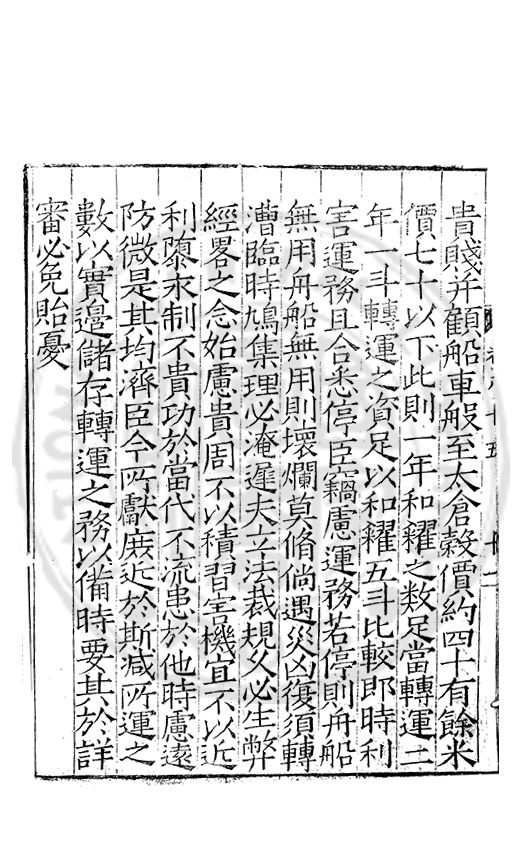 貴賤并顧船車般至太倉穀價約四十有餘米
價七十以下此則一年和糴之数足當轉運二
年一斗轉運之資足以和糴五斗比較即時利
害運務且合悉停臣竊慮運務若停則舟船
無用舟船無用則壞爛莫脩倘遇災凶復須轉
漕臨時鳩集理必淹遲夫立法裁規久必生弊
經畧之念始慮貴周不以積習害機宜不以近
利隳永制不貴功於當代不流患於他時慮遠
防微是其均濟臣今所獻庶近於斯减所運之
數以實邉儲存轉運之務以備時要其於詳
審必免貽憂